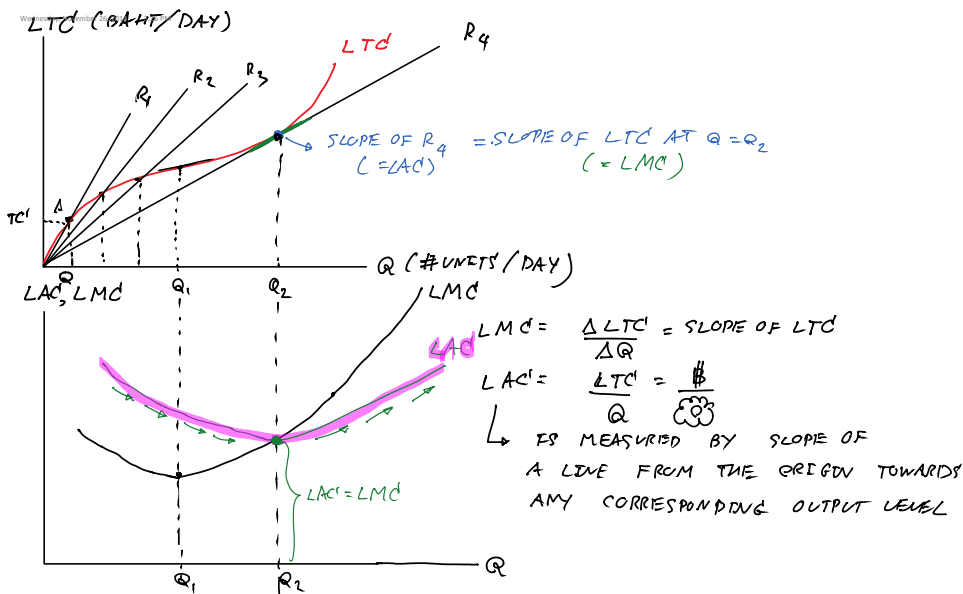 LTC (BAHT/DAY)
R4
LTC
R1
R2
R3
SLOPE OF R4 = SLOPE OF LTC AT Q = Q2
(=LAC)
(= LMC)
A
TC
Q
Q1
Q2
Q (#UNITS/DAY)
LAC, LMC
LMC
LAC
LMC = ΔLTC/ΔQ = SLOPE OF LTC
LAC = LTC/Q = ฿/Q
IS MEASURED BY SLOPE OF
A LINE FROM THE ORIGIN TOWARDS
ANY CORRESPONDING OUTPUT LEVEL
LAC = LMC
Q1
Q2
Q